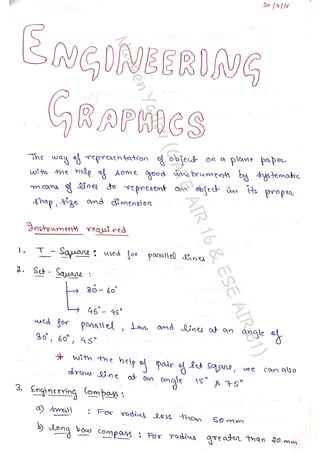 20/7/18
ENGINEERING
GRAPHICS
The way of representation of object on a plane paper
with the help of some good instruments by systematic
means of lines to represent an object in its proper
shap, size and dimention
Instruments required
1. T - Square : used for parallel lines
2. Set - Square :
→ 30° - 60°
→ 45° - 45°
used for parallel, Lar and lines at an angle of
30°, 60°, 45°
* with the help of pair of set square, we can also
draw line at an angle 15° & 75°
3. Engineering Compass :
a) small : For radius less than 50 mm
b) long bow compass : For radius greater than 20 mm
(GATE AIR 16 & ESE AIR